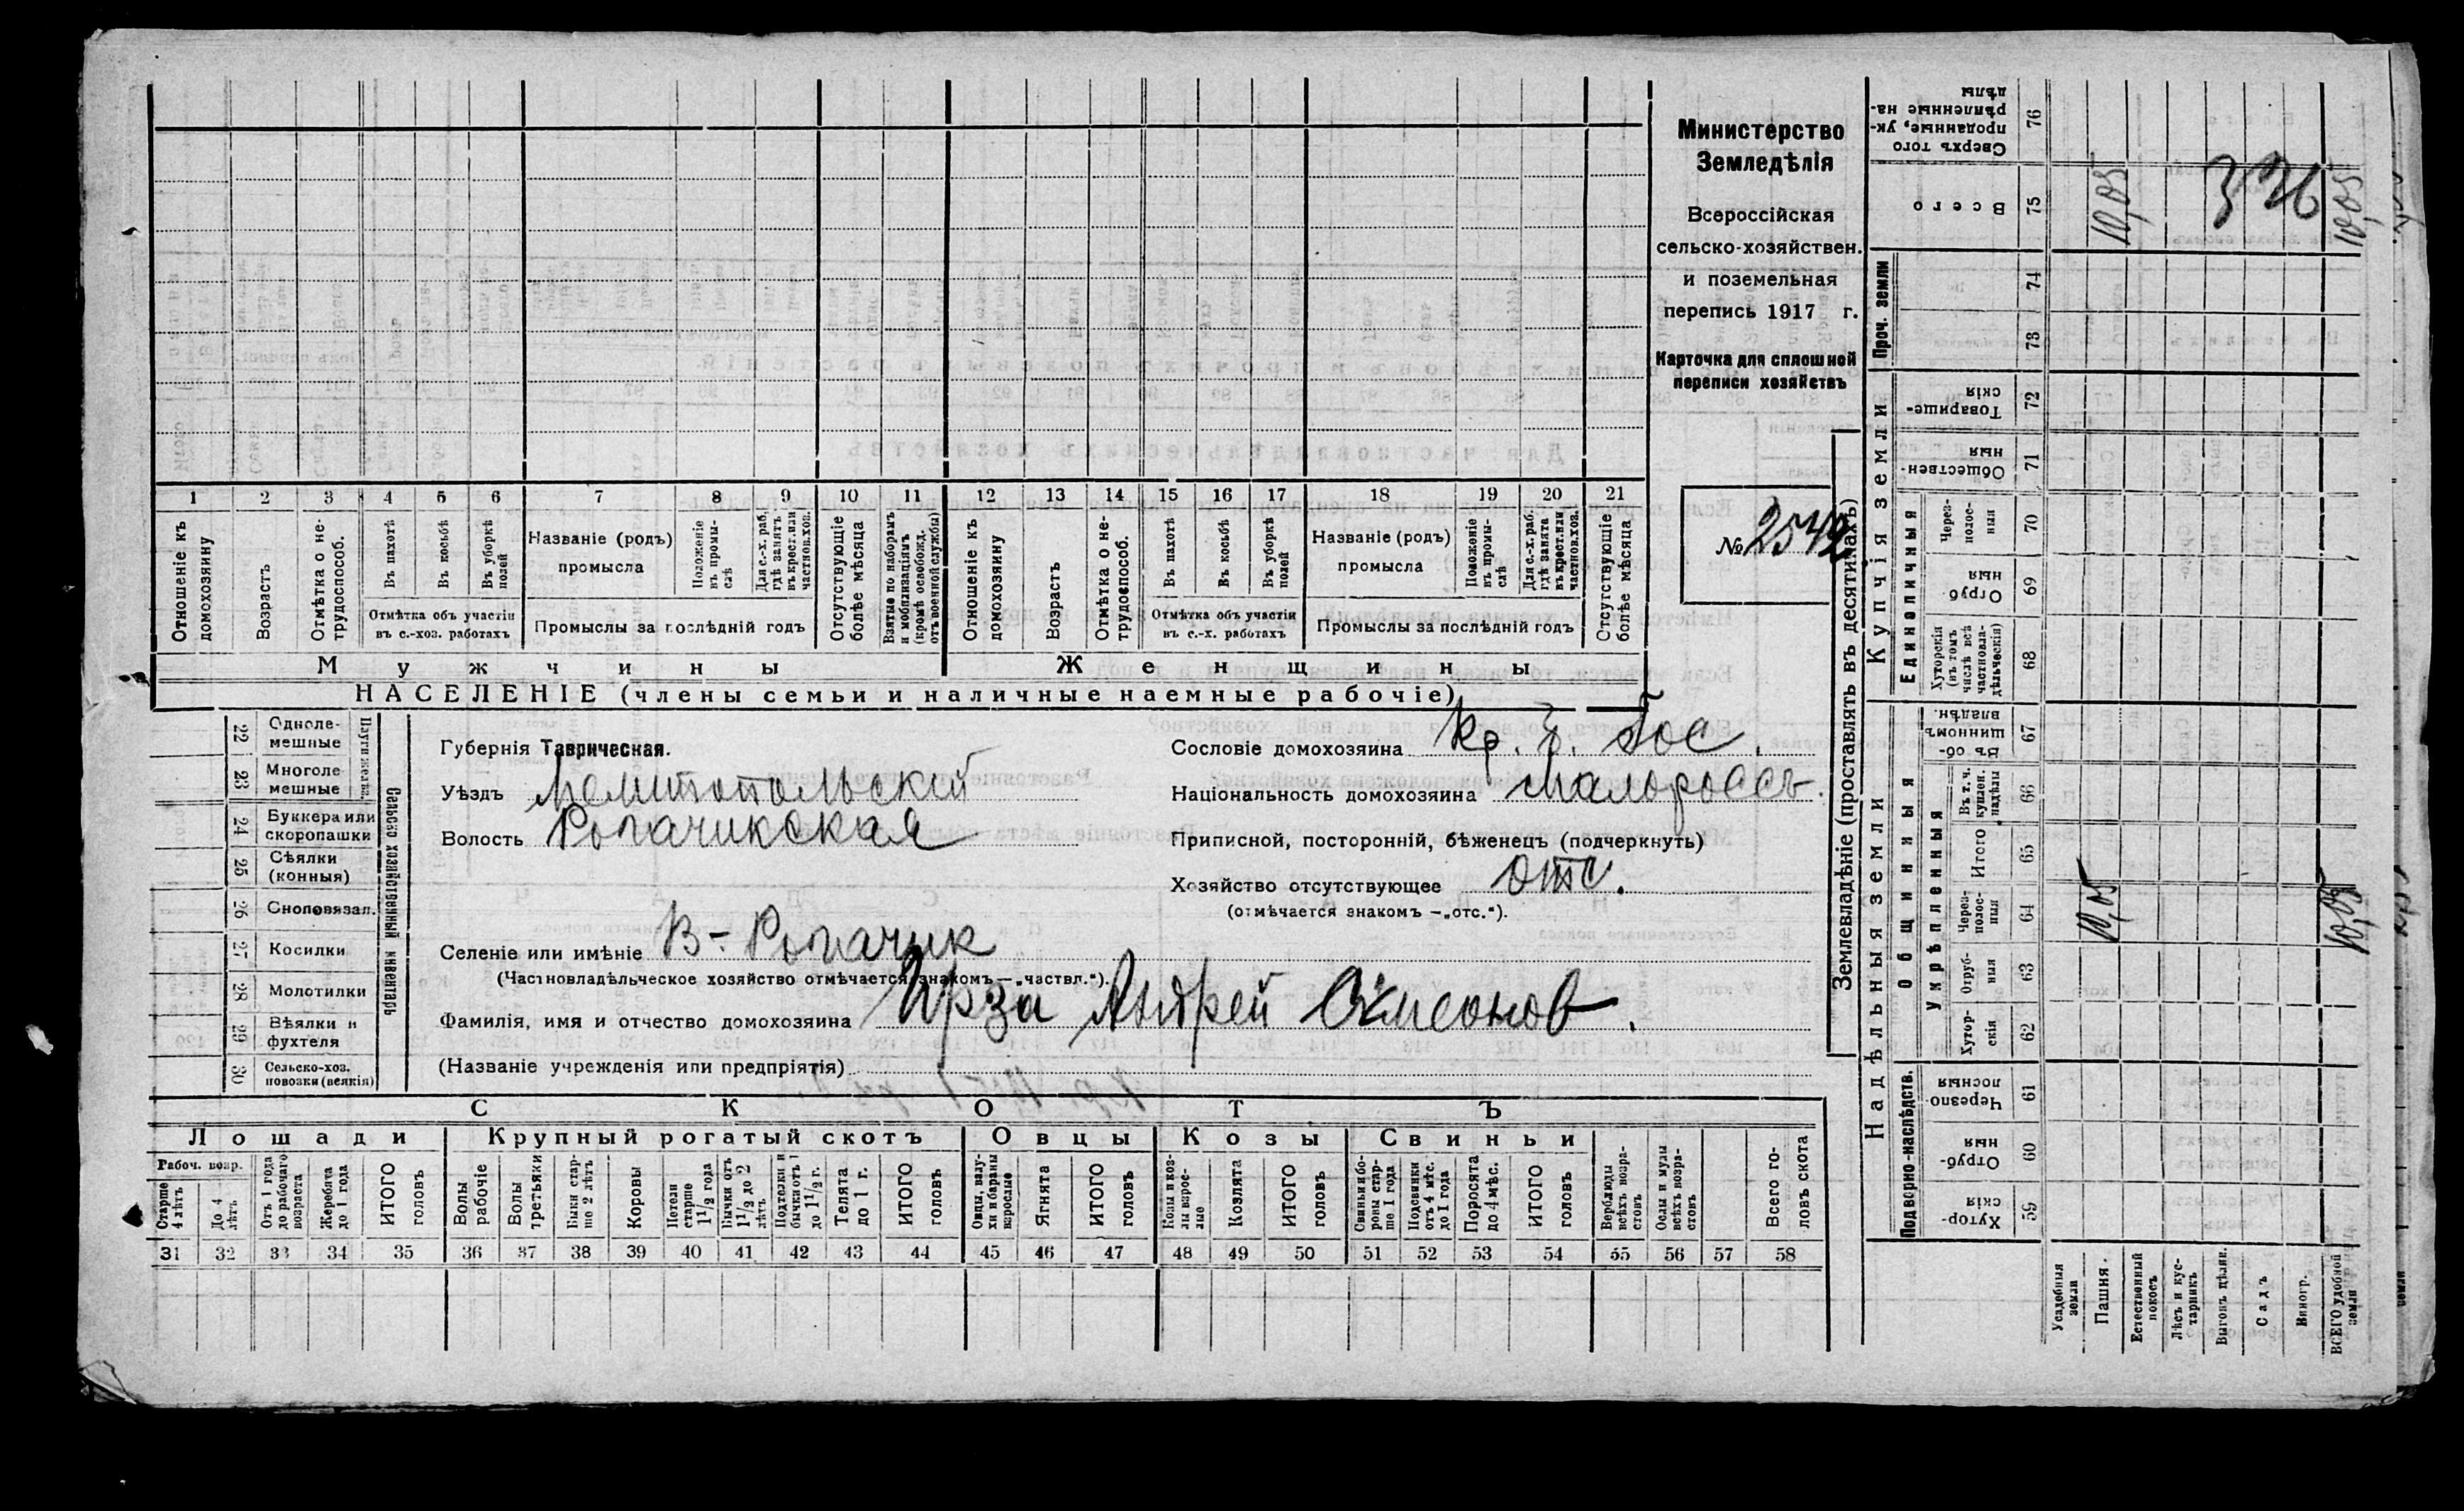 Министерство
Земледѣлія
Всероссійская
сельско-хозяйствен.
и поземельная
перепись 1917 г.
Карточка для сплошной
переписи хозяйствъ
№ 2542
1 2 3 4 5 6 7 8 9 10 11 12 13 14 15 16 17 18 19 20 21
Отношеніе къ домохозяину
Возрастъ
Отмѣтка о нетрудоспособ.
Въ пахотѣ
Въ косьбѣ
Въ уборкѣ полей
Отмѣтка объ участіи
въ с.-хоз. работахъ
Названіе (родъ)
промысла
Положеніе въ промыслѣ
Для с.-х. раб. гдѣ занятъ въ крест. или частнов. хоз.
Промыслы за послѣдній годъ
Отсутствующіе болѣе мѣсяца
Взятые по наборамъ и мобилизаціямъ (кромѣ освобожд. отъ военной службы)
Отношеніе къ домохозяину
Возрастъ
Отмѣтка о нетрудоспособ.
Въ пахотѣ
Въ косьбѣ
Въ уборкѣ полей
Отмѣтка объ участіи
въ с.-х. работахъ
Названіе (родъ)
промысла
Положеніе въ промыслѣ
Для с.-х. раб. гдѣ занята въ крест. или частнов. хоз.
Промыслы за послѣдній годъ
Отсутствующіе болѣе мѣсяца
Мужчины Женщины
НАСЕЛЕНІЕ (члены семьи и наличные наемные рабочіе)
22 Одноле-
мешные
23 Многоле-
мешные
24 Буккера или
скоропашки
25 Сѣялки
(конныя)
26 Сноповязал.
27 Косилки
28 Молотилки
29 Вѣялки и
фухтеля
30 Сельско-хоз.
повозки (всякія)
Сельско хозяйственный инвентарь
Губернія Таврическая.
Уѣздъ Мелитопольскій
Волость Рогачикская
Селеніе или имѣніе В-Рогачик
(Частновладѣльческое хозяйство отмѣчается знакомъ—„частвл.“).
Фамилія, имя и отчество домохозяина Ирза Андрей Симеонов.
(Названіе учрежденія или предпріятія)
Сословіе домохозяина Кр. б. Гос.
Національность домохозяина малороссъ.
Приписной, посторонній, бѣженецъ (подчеркнуть)
Хозяйство отсутствующее отс.
(отмѣчается знакомъ —„отс.“).
СКОТЪ
Лошади Крупный рогатый скотъ Овцы Козы Свиньи
Рабоч. возр.
Старше 4 лѣтъ
До 4 лѣтъ
Отъ 1 года до рабочаго возраста
Жеребята до 1 года
ИТОГО головъ
Волы рабочіе
Волы третьяки
Быки старше 2 лѣтъ
Коровы
Нетели старше 1 1/2 года
Бычки отъ 1 1/2 до 2 лѣтъ
Подтелки и бычки отъ 1 до 1 1/2 г.
Телята до 1 г.
ИТОГО головъ
Овцы, валухи и бараны взрослые
Ягнята
ИТОГО головъ
Козы и козлы взрослые
Козлята
ИТОГО головъ
Свиньи и бороны старше 1 года
Подсвинки отъ 4 мѣс. до 1 года
Поросята до 4 мѣс.
ИТОГО головъ
Верблюды всѣхъ возрастовъ
Ослы и мулы всѣхъ возрастовъ
Всего головъ скота
31 32 33 34 35 36 37 38 39 40 41 42 43 44 45 46 47 48 49 50 51 52 53 54 55 56 57 58
Землевладѣніе (проставлять въ десятинахъ)
Надѣльныя земли Купчія земли Проч. земли
Подворно-наслѣдств. Общинныя Единоличныя
Укрѣпленныя
59 Хуторскія
60 Отрубныя
61 Черезполосныя
62 Хуторскія
63 Отрубныя
64 Черезполосныя
65 Итого
66 Въ т. ч. куплен. надѣлы
67 Въ общинномъ владѣн.
68 Хуторскія (въ томъ числѣ всѣ частновладѣльческія)
69 Отрубныя
70 Черезполосныя
71 Общественныя
72 Товарищескія
73
74
75 Всего
76 Сверхъ того проданные, укрѣпленные надѣлы
Усадебныя земли
Пашня. 10,05 10,05
Естественный покосъ
Лѣсъ и кустарникъ
Выгонъ цѣлин.
Садъ
Виногр.
ВСЕГО удобной земли 10,05 10,05
336